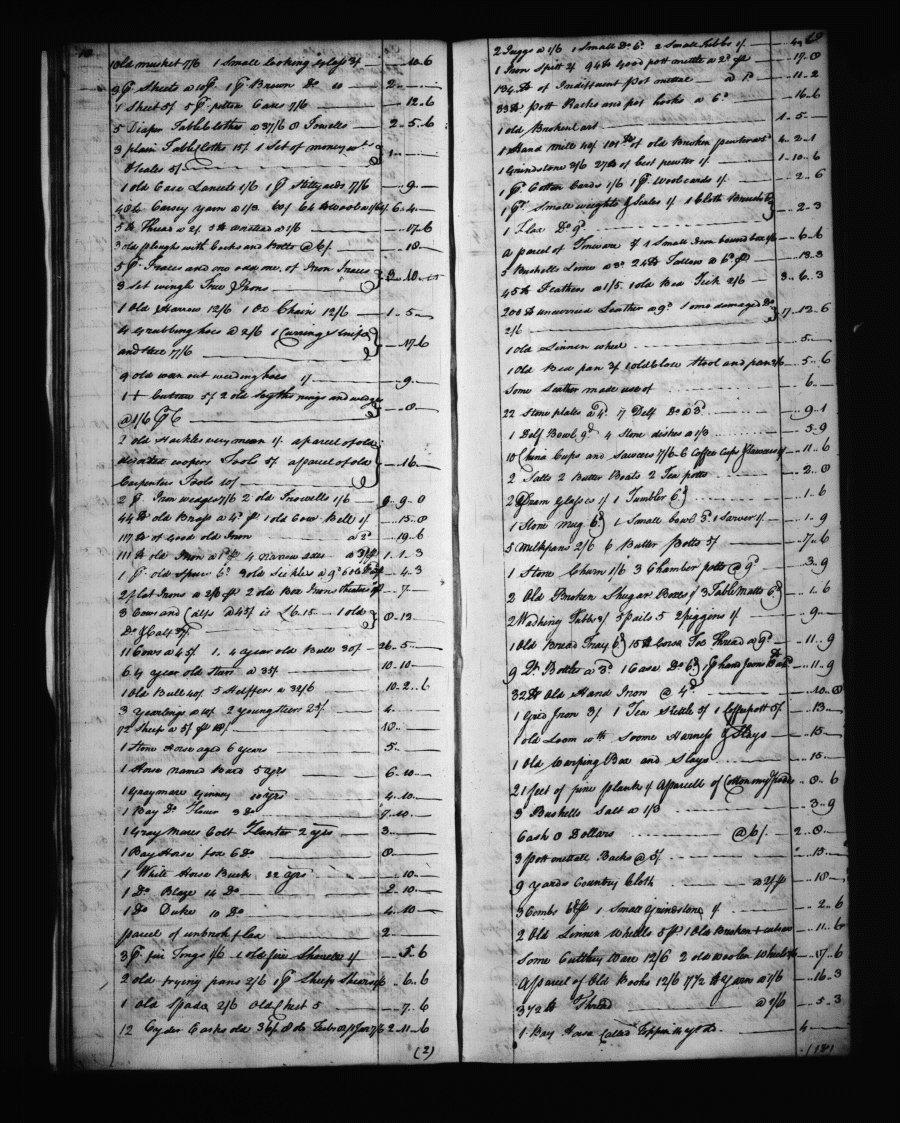 1 Old musket 7/6 1 Small looking glass 3/ 10.6
3 pr Sheets a 10/ 1 pr Brown Do 10 2..
1 Sheet 5/ 5 pr pillow Cases 7/6 12.6
5 Diaper Tablecloths a 37/6 8 Towells 2.5.6
3 plain Tablecloths 15/ 1 Set of money wt
& Scales 5/ 1..
1 old Case Lancets 1/6 1 pr Stillyards 7/6 9
Yarn a 1/3 6.4
5 lb Thread a 2/ 3 lb worsted a 1/6 17.6
3 old ploughs with and a 6/ 18
5 pr Traces and one odd one of Iron Traces
3 Set Swingle Tree Irons 3.10
1 Old Harrow 12/6 1 Ox Chain 12/6 1.5
4 Grubbing hoes a 2/6 1 Currying knife
and Steel 7/6 17.6
9 old worn out weeding hoes 1/ 9
5/ 2 old Scythe rings and wedge
@ 1/6 8
2 old Hackles very mean 1/ a parcel of old
coopers Tools 5/ a parcel of old
Carpenters Tools 10/ 16
2 pr Iron wedges 7/6 2 old 1/6 9 0
44 lb old Brass a 4d 1 old Cow Bell 1/ 15.8
117 lb of Good old Iron a 2d 19.6
111 lb old Iron a 1d 4 narrow axes a 3/ 1.1.3
1 pr old Spurs 6d 3 old Sickles a 9d 4.3
2 flat Irons a 2/ 2 old Box Irons 7
3 Cows and Calfs @ 45/ is £6.15 1 old
Do & Calf 37/ 8.12
11 Cows a 45/ 1 4 year old Bull 30/ 26.5
6 4 year old Steers a 35/ 10.10
1 Old Bull 40/ 5 Heiffers a 32/6 10.2.6
3 yearlings a 10/ 2 young Steers 25/ 4
72 Sheep a 5/ 18
1 Stone Horse aged 6 years 5
1 Horse named Bard 5 yrs 6.10
1 Gray mare Ginney 10 yrs 4.10
1 Bay Do Flower 3 Do 7.10
1 Gray Mares Colt Flanter 2 yrs 3
1 Bay Horse Fox 6 Do 8
1 White Horse Buck 22 yrs 10
1 Do Blaze 14 Do 2.10
1 Do Duke 10 Do 4.10
parcel of unbroke flax 2
3 pr fire Tongs 1/6 1 old fire Shovel 1/ 5.6
2 old frying pans 2/6 1 pr Sheep Shears 6.6
1 old Spade 2/6 Old Chest 5 7.6
12 Cyder Casks old 36/ 8 do 2.11.6
(2)
69
2 Juggs a 1/6 1 Small Do 6d 2 Small 1/ 4.6
1 Iron Spitt 4/ 94 lb Good pott mettle a 2d 19.8
134 lb of Indifferent Pot mettal a 1d 11.2
33 lb Pott Racks and pot hooks a 6d 16.6
1 old Broken Cart 1.5
1 Hand Mill 40/ 101 lb of old Broken pewter a 5d 4.2.1
1 Grindstone 3/6 27 lb of best pewter 1/ 1.10.6
1 pr Cotton Cards 1/6 1 pr Wool cards 1/ 2.6
1 pr Small weights & Scales 1/ 1 Cloth Brush 6d
1 Flax Do 9d 2.3
a parcel of Tinware 1 Small Iron bound box 6.6
5 Bushells Lime a 3d 24 lb Tallow a 6d 13.3
45 lb Feathers a 1/5 1 old Bed Tick 2/6 3.6.3
200 lb uncurried Leather a 9d 1 some damaged Do
2/6 7.12.6
1 old Linnen wheel 5
1 Old Bed pan 3/ 1 old Stool and pan 2/6 5.6
Some Leather made use of 6
22 Stone plates a 4d 7 Delf Do a 3d 9.1
1 Delf Bowl 9d 4 Stone dishes a 1/3 5.9
10 China Cups and Sawcers 7/6 6 Coffee Cups & Sawcers 4/ 11.6
2 Salts 2 Butter Boats 2 Tea potts 2.0
2 Dram Glasses 1/ 1 Tumbler 6d 1.6
1 Stone Mug 6d 1 Small bowl 3d 1 Sarver 1/ 1.9
5 Milkpans 2/6 6 Butter Potts 5/ 7.6
1 Stone Churn 1/6 3 Chamber potts @ 9d 3.9
2 Old Broken Shugar Boxes 1/ 3 Table Matts 6d 1.6
2 Washing Tubbs 3/ 3 pails 5 2 piggins 1/ 9
1 Old Bread Tray 6d 15 lb Coarse Tow Thread a 9d 11.9
9 Qt Bottles a 3d 1 Case Do 6d 1 pr hand 11.9
32 lb Old Hand Iron @ 4d 10.8
1 Grid Iron 3/ 1 Tea Kettle 5/ 1 Coffepott 5/ 13
1 old Loom wth Soome Harness & Slays 15
1 Old Warping Box and Slays 15
21 feet of pine plank & a parcell of 8.6
3 Bushells Salt a 1/3 3.9
Cash 8 Dollars @ 6/ 2.8
3 pott mettall Backs @ 5/ 15
9 yards Country Cloth a 2/ 18
3 Combs 6d 1 Small Grindstone 1/ 2.6
2 Old Linnen Wheells 5 1 Old Broken 11.6
Some Cuttlery Ware 12/6 2 old woolen Wheels 17.6
a parcel of Old Books 12/6 172 lb Yarn a 1/6 16.3
3 1/2 lb Thread @ 1/6 5.3
1 Bay Horse Called 4
(18)